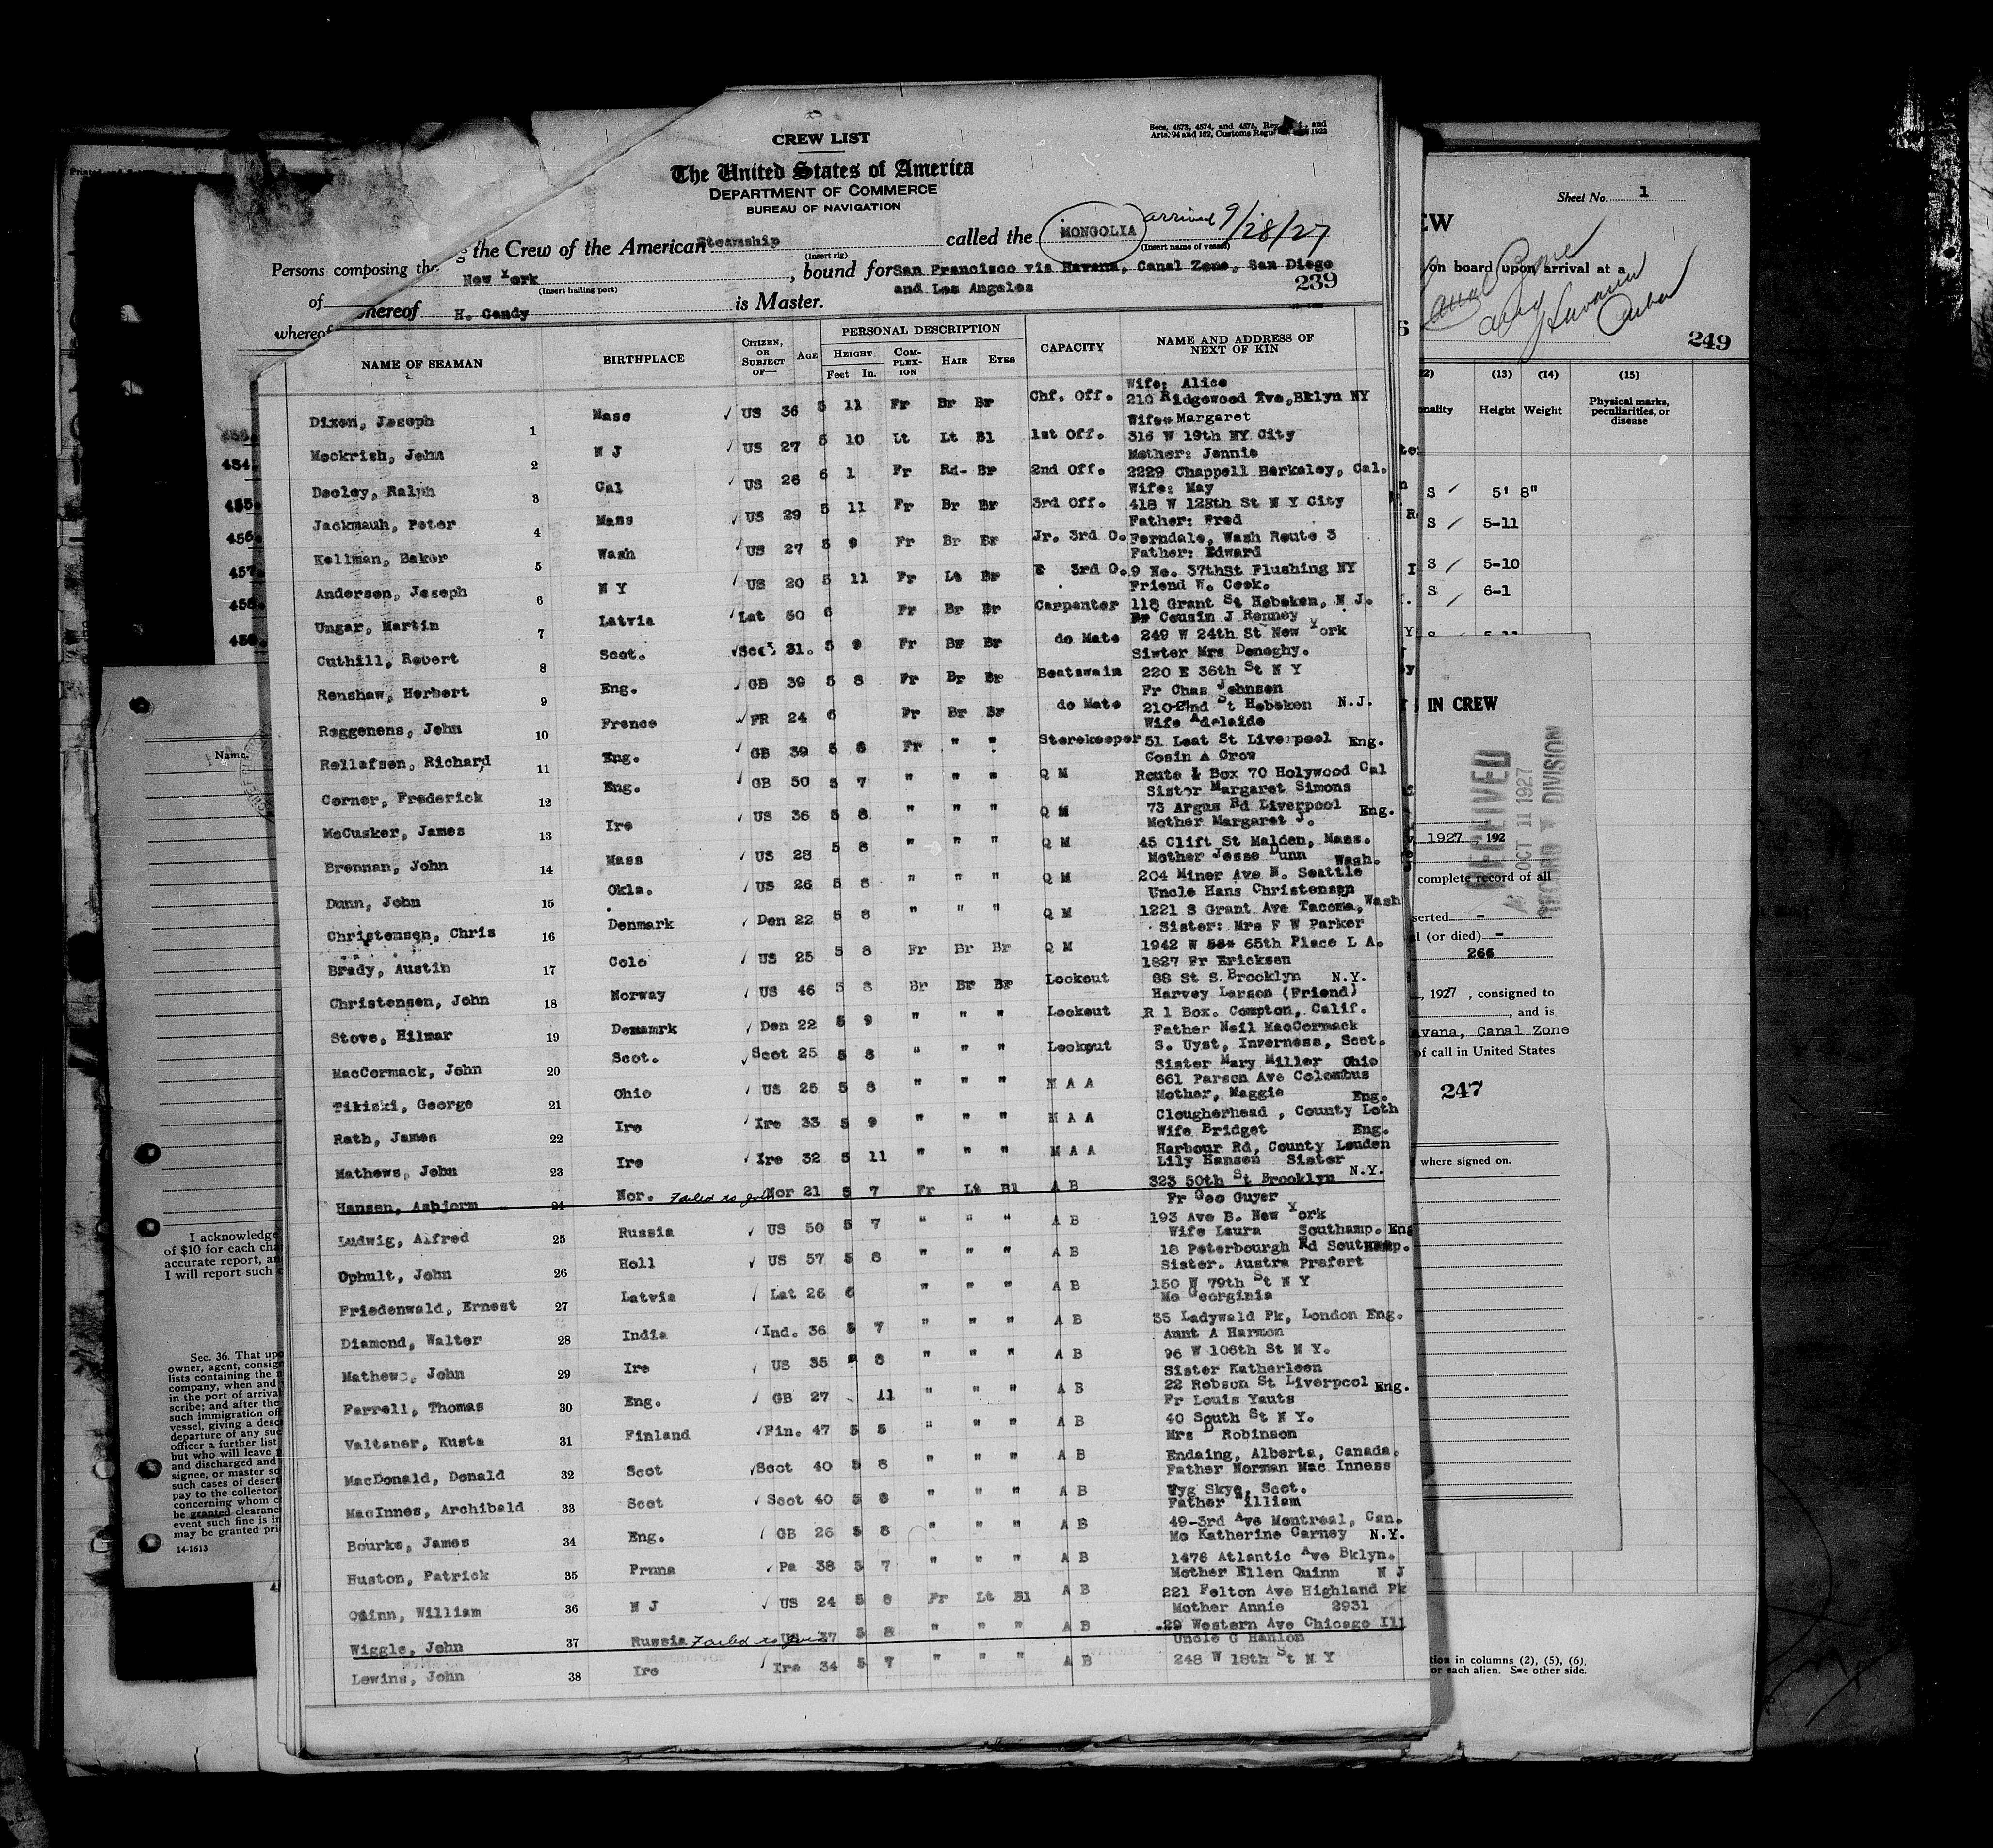 CREW LIST
Secs. 4573, 4574, and 4575, Rev. , and
Arts. 94 and 162, Customs Regu 1923
The United States of America
DEPARTMENT OF COMMERCE
BUREAU OF NAVIGATION
g the Crew of the American Steamship called the MONGOLIA arrived 9/28/27
(Insert rig) (Insert name of vessel)
Persons composing the New York , bound for San Francisco via Havana, Canal Zone, San Diego
(Insert hailing port) and Los Angeles 239
of whereof H. Candy is Master.
whereof
NAME OF SEAMAN BIRTHPLACE CITIZEN, OR SUBJECT OF— AGE PERSONAL DESCRIPTION CAPACITY NAME AND ADDRESS OF NEXT OF KIN
HEIGHT COMPLEXION HAIR EYES
Feet In.
Wife: Alice
Dixon, Joseph 1 Mass US 36 5 11 Fr Br Br Chf. Off. 210 Ridgewood Ave, Bklyn NY
Wife* Margaret
Mockrish, John 2 N J US 27 5 10 Lt Lt Bl 1st Off. 316 W 19th NY City
Mother: Jennie
Dooley, Ralph 3 Cal US 26 6 1 Fr Rd- Br 2nd Off. 2229 Chappell Berkeley, Cal.
Wife: May
Jackmauh, Peter 4 Mass US 29 5 11 Fr Br Br 3rd Off. 418 W 128th St N Y City
Father: Fred
Kellman, Baker 5 Wash US 27 5 9 Fr Br Br Jr. 3rd O. Ferndale, Wash Route 3
Father: Edward
Andersen, Joseph 6 N Y US 20 5 11 Fr Lt Br E 3rd O. 9 No. 37thSt Flushing NY
Friend W. Cook.
Ungar, Martin 7 Latvia Lat 50 6 Fr Br Br Carpenter 118 Grant St Hoboken, N J.
Br Cousin J Renney
Cuthill, Robert 8 Scot. Scot 31. 5 9 Fr Br Br do Mate 249 W 24th St New York
Sister Mrs Donoghy.
Renshaw, Herbert 9 Eng. GB 39 5 8 Fr Br Br Boatswain 220 E 36th St N Y
Fr Chas Johnson
Roggenens, John 10 France FR 24 6 Fr Br Br do Mate 210-2nd St Hoboken N.J.
Wife Adelaide
Rollafsen, Richard 11 Eng. GB 39 5 8 Fr " " Storekeeper 51 Leat St Liverpool Eng.
Cosin A Crow
Corner, Frederick 12 Eng. GB 50 5 7 " " " Q M Route 1 Box 70 Holywood Cal
Sister Margaret Simons
McCusker, James 13 Ire US 36 5 8 " " " Q M 73 Argus Rd Liverpool Eng.
Mother Margaret J.
Brennan, John 14 Mass US 28 5 8 " " " Q M 45 Clift St Malden, Mass.
Mother Jesse Dunn Wash.
Dunn, John 15 Okla. US 26 5 8 " " " Q M 204 Miner Ave N. Seattle
Uncle Hans Christensen
Christensen, Chris 16 Denmark Den 22 5 8 " " " Q M 1221 S Grant Ave Tacoma, Wash
Sister: Mrs F W Parker
Brady, Austin 17 Colo US 25 5 8 Fr Br Br Q M 1942 W 65th Place L A.
1827 Fr Ericksen
Christensen, John 18 Norway US 46 5 8 Br Br Br Lookout 88 St S. Brooklyn N.Y.
Harvey Larson (Friend)
Stove, Hilmar 19 Demamrk Den 22 5 9 " " " Lookout R 1 Box. Compton, Calif.
Father Neil MacCormack
MacCormack, John 20 Scot. Scot 25 5 8 " " " Lookout S. Uyst, Inverness, Scot.
Sister Mary Miller Ohio
Tikiski, George 21 Ohio US 25 5 8 " " " M A A 661 Parson Ave Colombus
Mother, Maggie Eng.
Rath, James 22 Ire Ire 33 5 9 " " " M A A Clougherhead , County Loth
Wife Bridget Eng.
Mathews, John 23 Ire Ire 32 5 11 " " " M A A Harbour Rd, County Louden
Lily Hansen Sister
Hansen, Asbjorm 24 Nor. Failed to join Nor 21 5 7 Fr Lt Bl A B 323 50th St Brooklyn N.Y.
Fr Geo Guyer
Ludwig, Alfred 25 Russia US 50 5 7 " " " A B 193 Ave B. New York
Wife Laura Southamp. Eng
Ophult, John 26 Holl US 57 5 8 " " " A B 18 Peterbourgh Rd Southamp.
Sister. Austra Prefert
Friedenwald, Ernest 27 Latvia Lat 26 6 " " " A B 150 W 79th St N Y
Mo Georginia
Diamond, Walter 28 India Ind. 36 5 7 " " " A B 35 Ladywald Pk, London Eng.
Aunt A Harmon
Mathews, John 29 Ire US 35 8 " " " A B 96 W 106th St N Y.
Sister Katherleen
Farrell, Thomas 30 Eng. GB 27 11 " " " A B 22 Robson St Liverpool Eng.
Fr Louis Yauts
Valtaner, Kusta 31 Finland Fin. 47 5 5 " " " A B 40 South St N Y.
Mrs D Robinson
MacDonald, Donald 32 Scot Scot 40 5 8 " " " A B Endaing, Alberta, Canada.
Father Norman Mac Inness
MacInnes, Archibald 33 Scot Scot 40 5 8 " " " A B Uyg Skye, Scot.
Father William
Bourke, James 34 Eng. GB 26 5 8 " " " A B 49-3rd Ave Montreal, Can.
Mo Katherine Carney N.Y.
Huston, Patrick 35 Prnna Pa 38 5 7 " " " A B 1476 Atlantic Ave Bklyn.
Mother Ellen Quinn N J
Quinn, William 36 N J US 24 5 8 Fr Lt Bl A B 221 Felton Ave Highland Pk
Mother Annie 2931
Wiggle, John 37 Russia Failed to join US 37 5 8 " " " A B 29 Western Ave Chicago Ill
Uncle G Hanlon
Lewins, John 38 Ire Ire 34 5 7 " " " A B 248 W 18th St N Y
454.
455.
456.
457.
458.
Name.
I acknowledge
of $10 for each
accurate report,
I will report such
Sec. 36. That
owner, agent, consig
lists containing the
company, when and
in the port of arrival
scribe; and after the
such immigration of
vessel, giving a desc
departure of any suc
officer a further list
but who will leave
and discharged and
signee, or master
such cases of desert
pay to the collector
concerning whom
be granted clearanc
event such fine is in
may be granted pri
14-1613
Sheet No. 1
EW
on board upon arrival at a
Canal Zone
and Havana
Cuba
249
(13) (14) (15)
nality Height Weight Physical marks, peculiarities, or disease
S 5' 8"
S 5-11
S 5-10
S 6-1
S 5-11
IN CREW
RECEIVED
OCT 11 1927
RECORD DIVISION
1927 , 192
complete record of all
serted –
l (or died) –
266
, 1927 , consigned to
, and is
avana, Canal Zone
of call in United States
247
where signed on.
tion in columns (2), (5), (6),
or each alien. See other side.